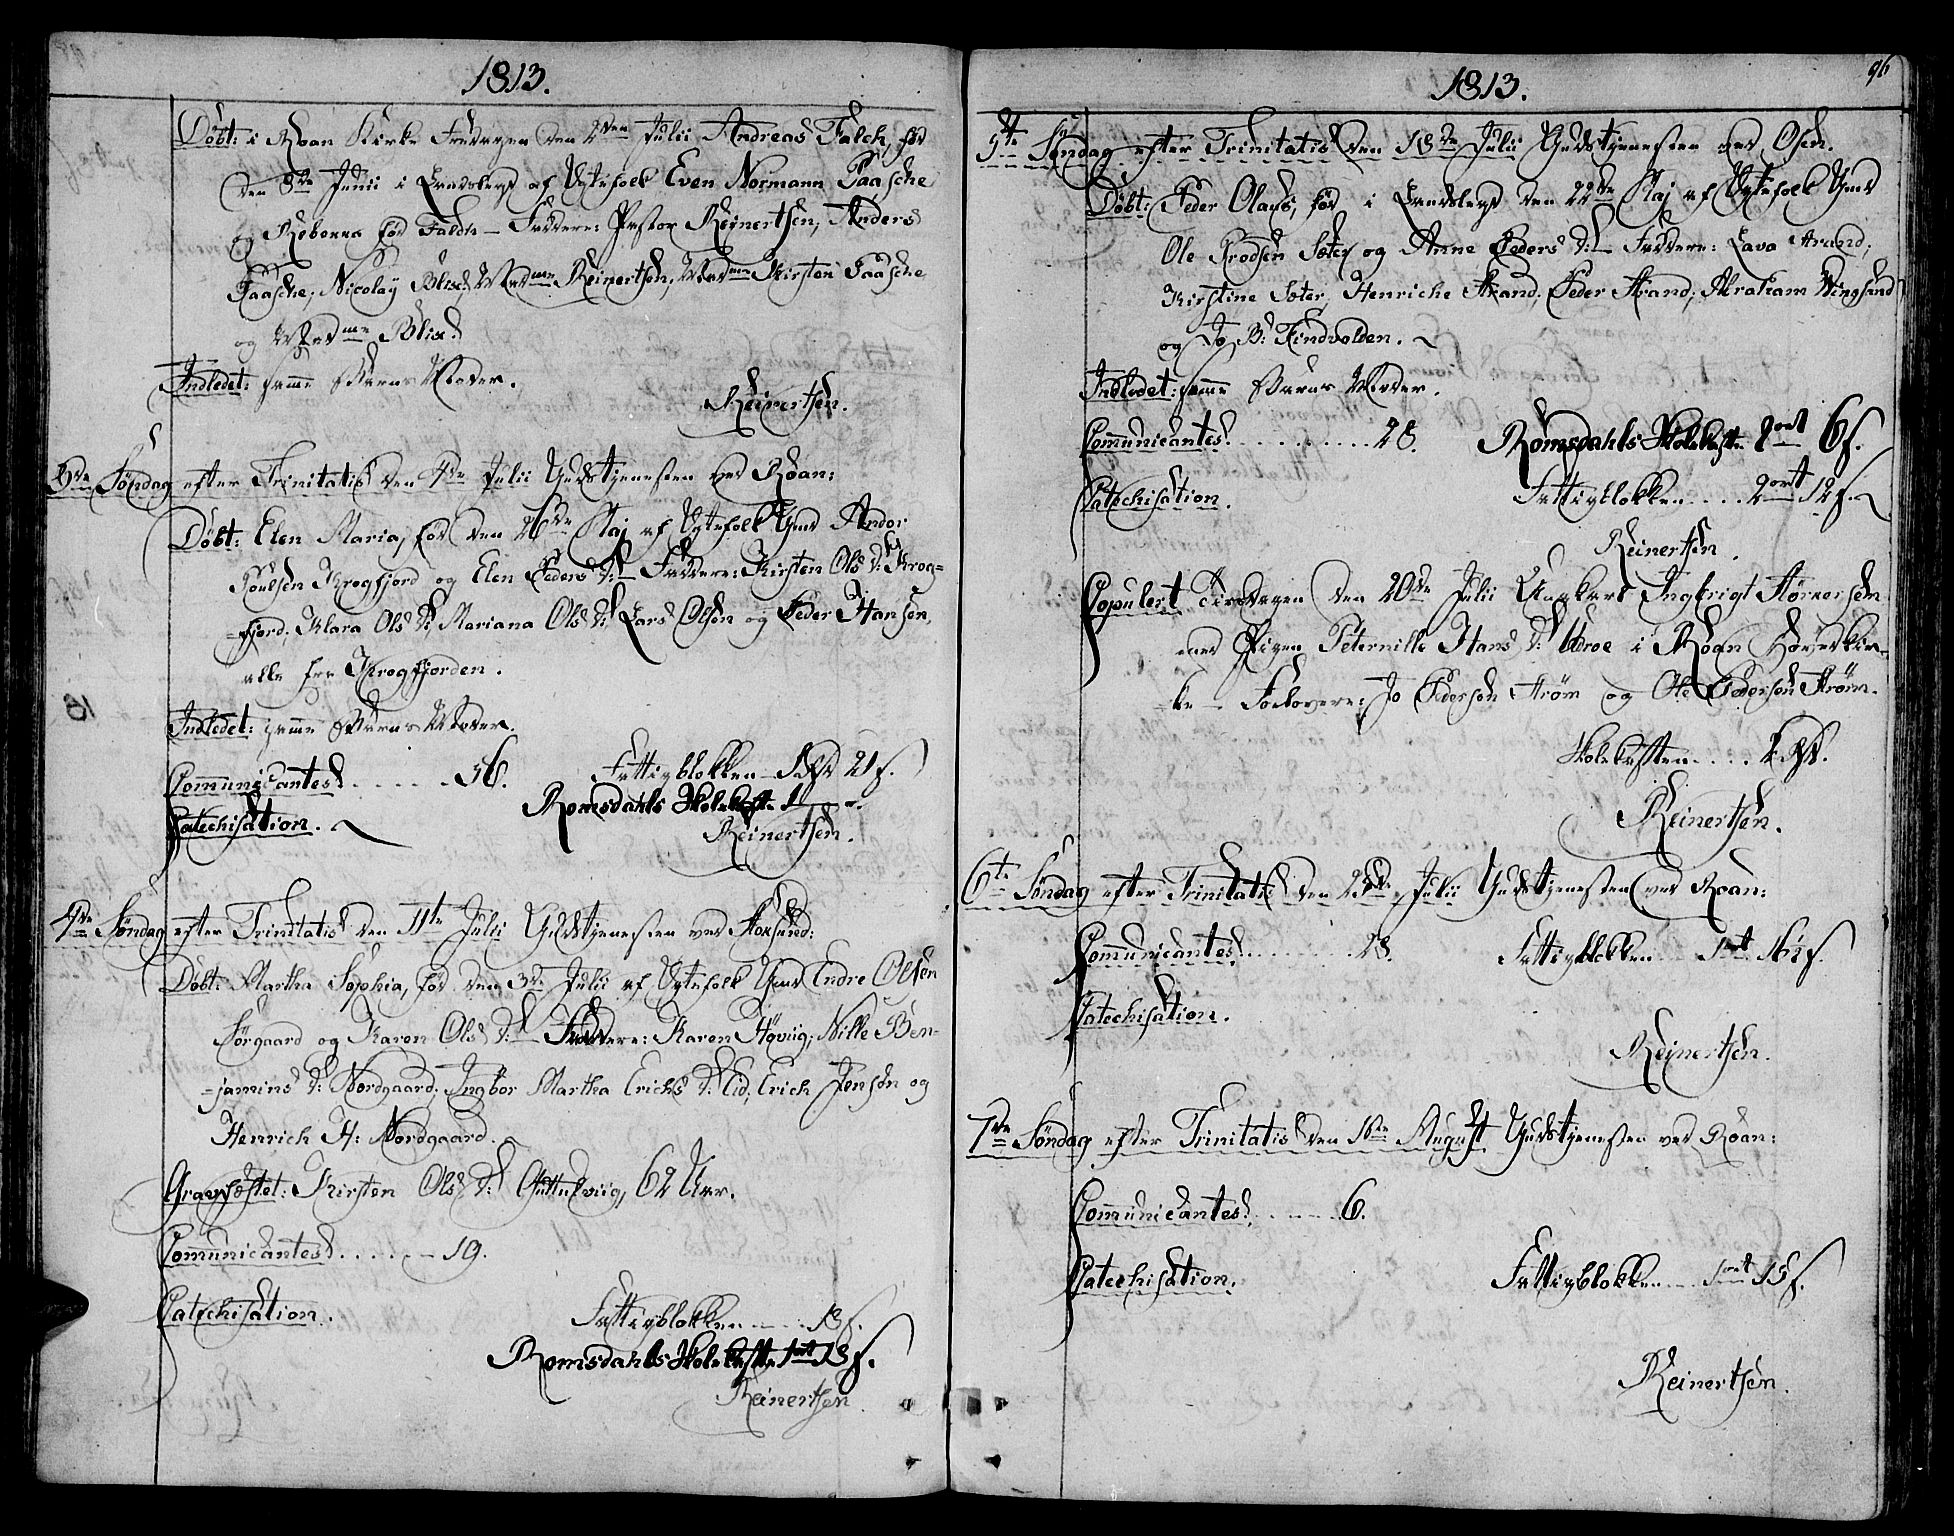 1813.
Døbt: i Roan Kirke Fredagen den 2den Julii Andreas Falch, fød
den 8de Junii i Landslegd af Ægtefolk Even Normann Paasche
og Rebecca fød Falch – Faddere: Pastor Reinertsen, Anders
Paasche, Nicolay Blix, Madme Reinertsen, Madme Kirsten Paasche
og Madme Blix.
Indledet: samme Barns Moder.
Reinertsen.
3de Søndag efter Trinitatis den 4de Julii Gudstjenesten ved Roan:
Døbt: Elen Maria, fød den 26de Maj af Ægtefolk Gmd Andor
Poulsen Krogfjord og Elen Peders D: – Faddere: Kirsten Ols D: Krog=
=fjord, Klara Ols D: Mariana Ols D: Lars Olsen og Peder Hansen,
alle fra Krogfjorden.
Indledet: samme Barns Moder.
Communicantes . . . . . 56. Fattigblokken – 1 21 s.
Romsdahls Skolekasse 1
Catechisation.
Reinertsen.
4de Søndag efter Trinitatis den 11te Julii Gudstjenesten ved Stoksund:
Døbt: Martha Sophia, fød den 3de Julii af Ægtefolk Gmd Endre Olsen
Sørgaard og Karen Ols D: – Faddere: Karen Høviig, Nille Ben-
=jamins D: Nordgaard, Ingbor Martha Erichs D: Eid, Erich Jensen og
Henrich H: Nordgaard.
Gravfæstet: Kirsten Ols D: 62 Aar.
Communicantes . . . . . 19.
Catechisation. Fattigblokken . . . . 18 s.
Romsdahls Skolekasse 1 ort 18 s.
Reinertsen
1813.
96
5te Søndag efter Trinitatis den 18de Julii Gudstjenesten ved Osen.
Døbt: Peder Olaus, fød i Landslegd den 22de Maj af Ægtefolk Gmd
Ole Brodsen Sæter og Anne Peders D: – Faddere: Lava Strand,
Kirstine Sæter, Henriche Strand, Peder Strand, Abraham Vingsand
og Jo B: Findvolden.
Indledet: samme Barns Moder.
Communicantes . . . . . 28. Romsdahls Skolekasse 2 ort 6 s.
Catechisation. Fattigblokken . . . . 2 ort 12 s.
Reinertsen.
Copulert Tirsdagen den 20de Julii Ungkarl Ingbrigt Størkersen
med Pigen Peternille Hans D: i Roan Hovedkir-
=ke – Forlovere: Jo Pedersen Strøm og Ole Pedersen Strøm.
Skolekassen . . . . 2
Reinertsen.
6te Søndag efter Trinitatis den 25de Julii Gudstjenesten ved Roan:
Communicantes . . . . . 28. Fattigblokken 1 ort 16½ s.
Catechisation.
Reinertsen.
7de Søndag efter Trinitatis den 1ste August Gudstjenesten ved Roan:
Communicantes . . . . . 6.
Catechisation. Fattigblokken . . . . 1 ort 15 s.
Reinertsen.